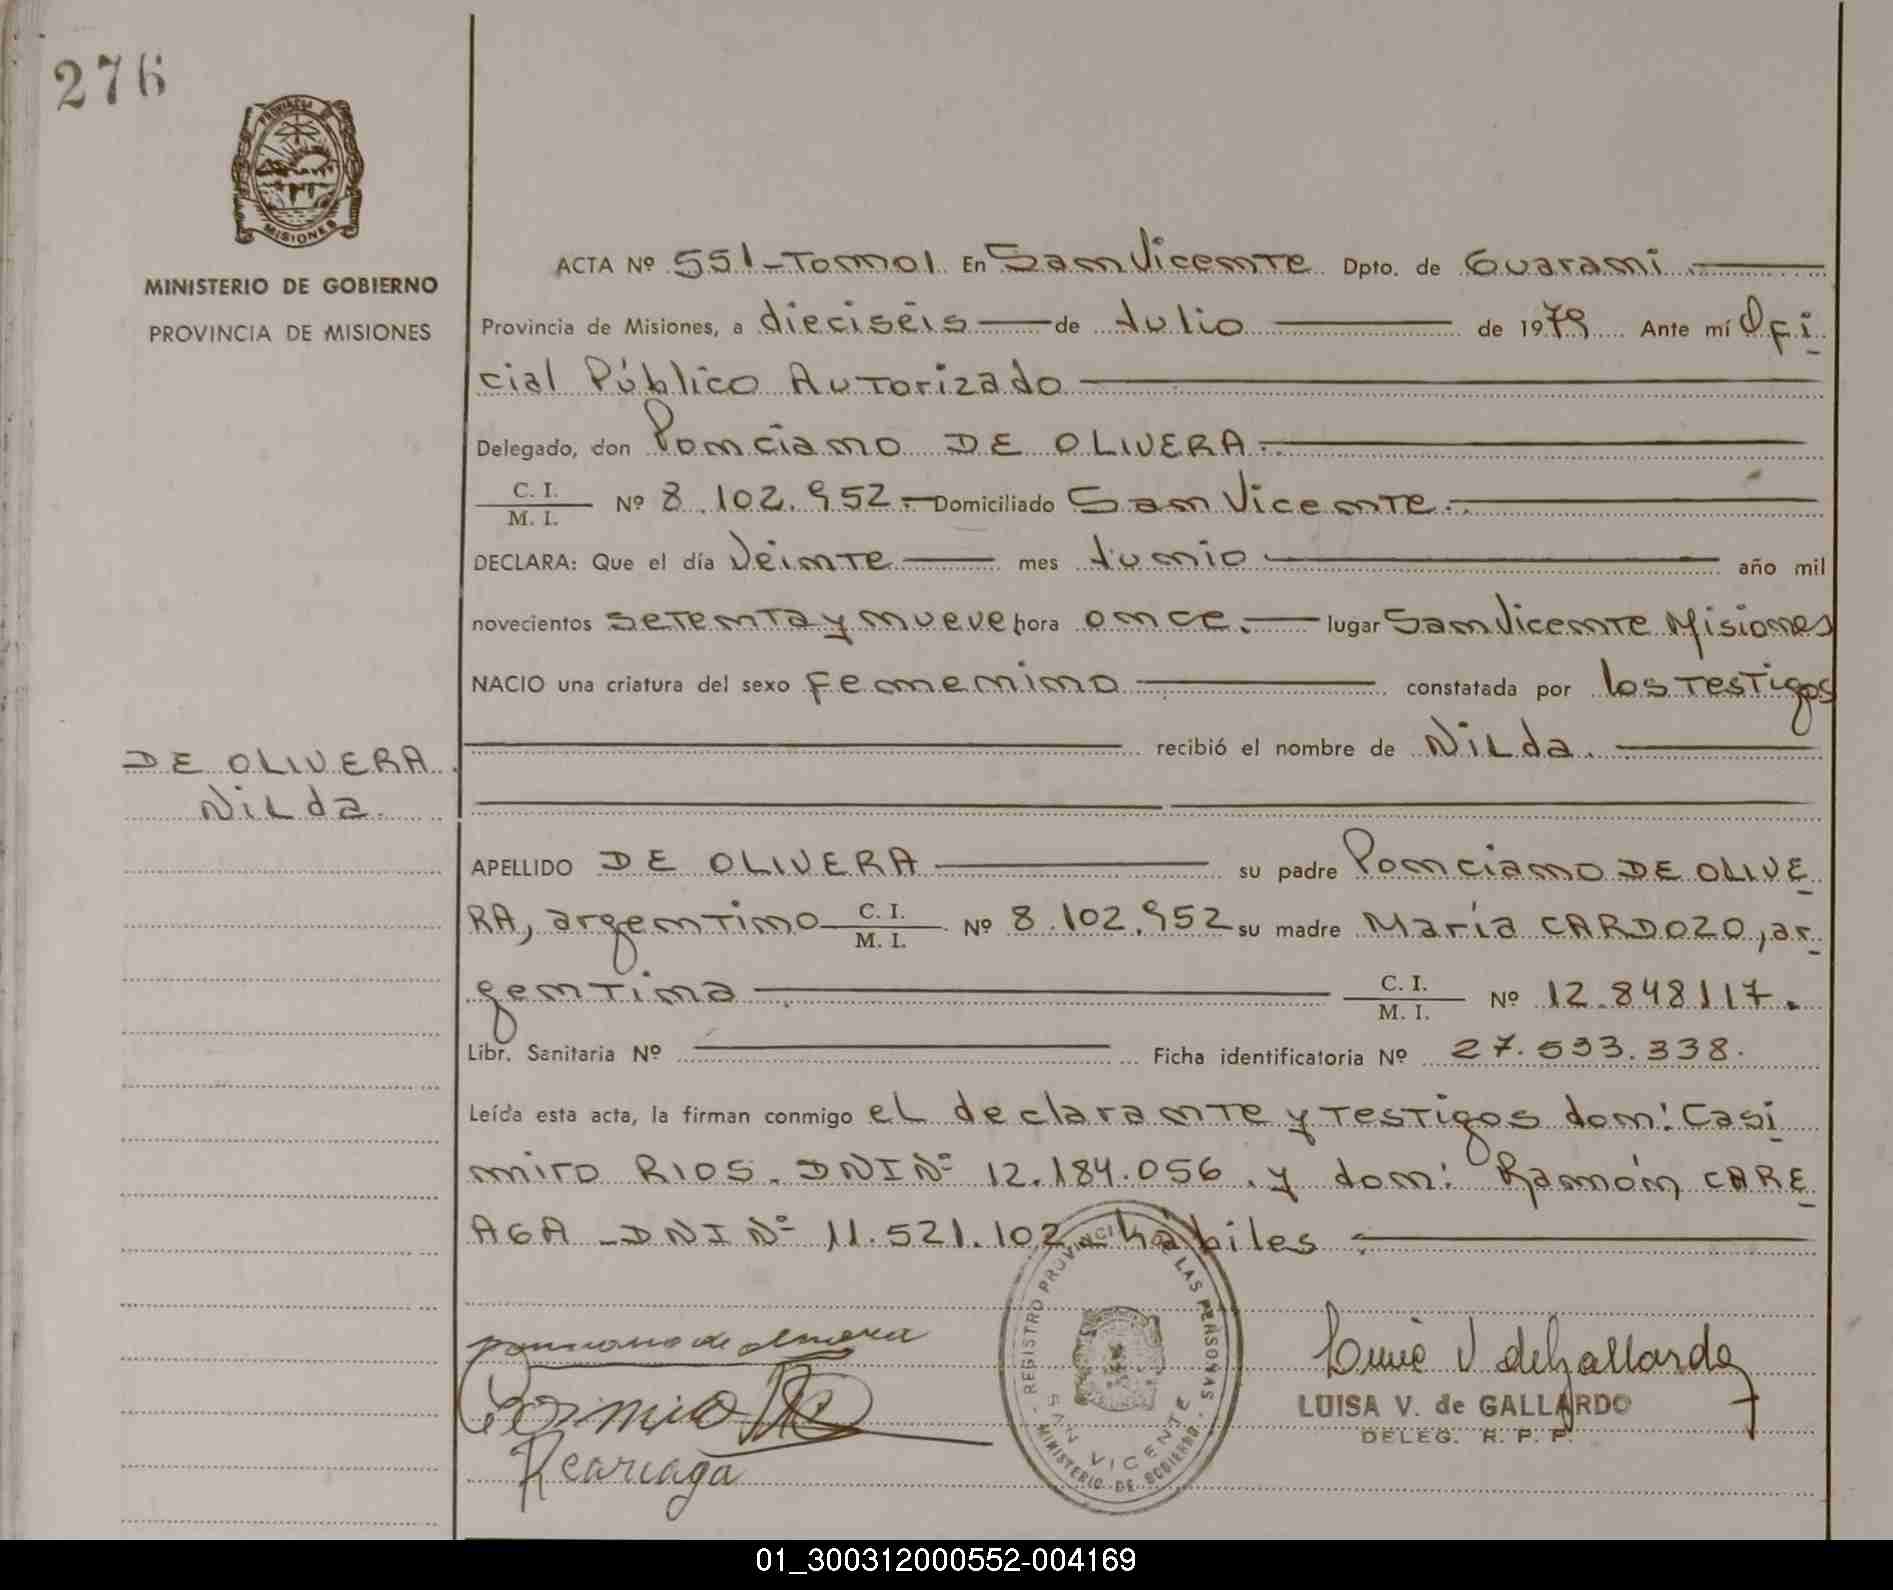 276
PROVINCIA
MISIONES
MINISTERIO DE GOBIERNO
PROVINCIA DE MISIONES
ACTA Nº 551-Tomo1 En San Vicente Dpto. de Guaraní
Provincia de Misiones, a dieciséis de Julio de 1979 Ante mí Ofi
cial Público Autorizado
Delegado, don Ponciano DE OLIVERA.
C. I.
M. I.
Nº 8.102.952. Domiciliado San Vicente.
DECLARA: Que el día Veinte mes Junio año mil
novecientos setenta y nueve hora once. lugar San Vicente Misiones
NACIO una criatura del sexo femenino constatada por los Testigos
recibió el nombre de Nilda.
DE OLIVERA
Nilda.
APELLIDO DE OLIVERA su padre Ponciano DE OLIVE
RA, argentino C. I. M. I. Nº 8.102.952 su madre María CARDOZO, ar
gentina C. I. M. I. Nº 12.848117.
Libr. Sanitaria Nº Ficha identificatoria Nº 27.533.338.
Leída esta acta, la firman conmigo el declarante y Testigos don: Casi
miro RIOS. DNI Nº 12.184.056. y don: Ramón CARE
AGA - DNI Nº 11.521.102 - hábiles
ponciano de olivera
Rcariaga
REGISTRO PROVINCIAL DE LAS PERSONAS
SAN VICENTE
MINISTERIO DE GOBIERNO
LUISA V. de GALLARDO
DELEG. R. P. P.
01_300312000552-004169